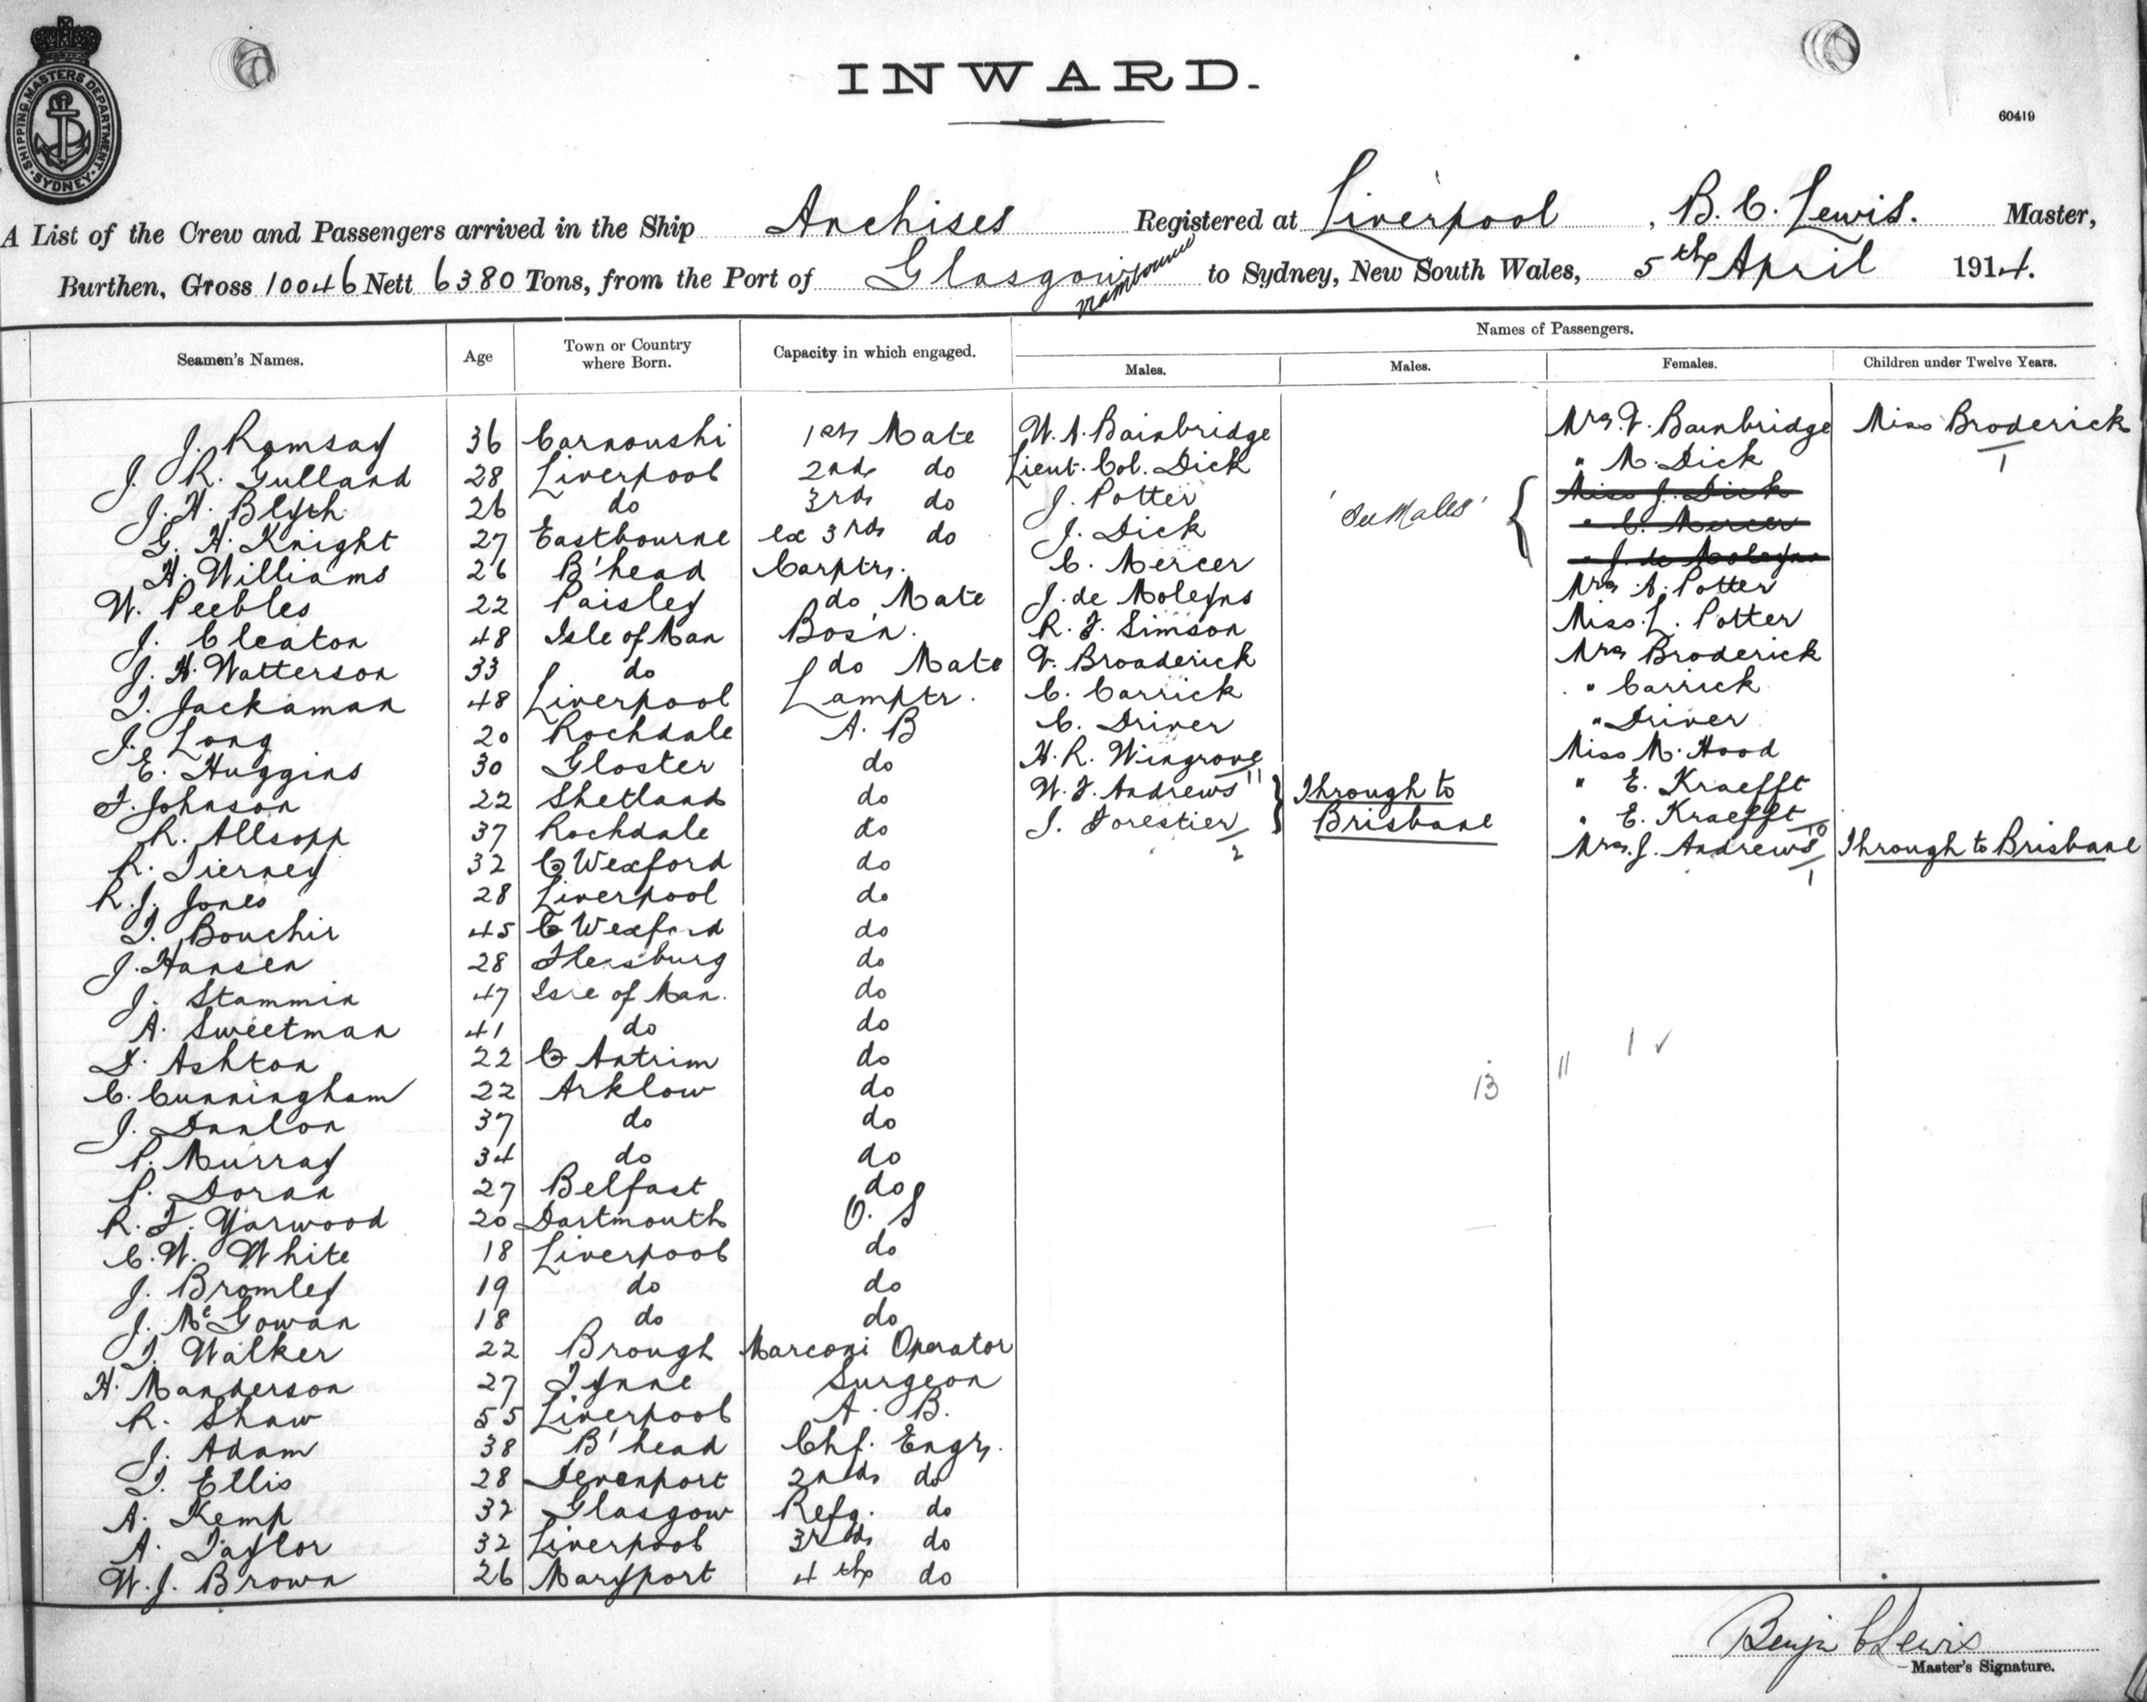 SHIPPING MASTERS DEPARTMENT · SYDNEY ·
INWARD.
60419
A List of the Crew and Passengers arrived in the Ship Anchises Registered at Liverpool, B. C. Lewis. Master,
Burthen, Gross 10046 Nett 6380 Tons, from the Port of Glasgow to Sydney, New South Wales, 5th April 1914.
Names of Passengers.
Seamen's Names. Age Town or Country where Born. Capacity in which engaged. Males. Males. Females. Children under Twelve Years.
J. Ramsay 36 Carnoushi 1st Mate W. A. Bainbridge Mrs. V. Bainbridge Miss Broderick
J. R. Gulland 28 Liverpool 2nd do Lieut. Col. Dick " M. Dick 1
J. H. Blyth 26 do 3rd do J. Potter Miss J. Dick
G. H. Knight 27 Eastbourne ex 3rd do J. Dick 'See Males' { " C. Mercer
H. Williams 26 B'head Carptr. C. Mercer " J. de Moleyns
W. Peebles 22 Paisley do Mate J. de Moleyns Mrs. A. Potter
J. Cleaton 48 Isle of Man Bos'n. R. F. Simson Miss. L. Potter
J. H. Watterson 33 do do Mate V. Broaderick Mrs Broderick
T. Jackaman 48 Liverpool Lamptr. C. Carrick " Carrick
J. Long 20 Rochdale A. B C. Driver " Driver
E. Huggins 30 Gloster do H. R. Wingrove 11 Miss M. Hood
F. Johnson 22 Shetland do W. F. Andrews } Through to " E. Kraefft
R. Allsopp 37 Rochdale do J. Forestier 2 Brisbane " E. Kraefft 10
R. Tierney 32 C Wexford do Mrs. J. Andrews 1 Through to Brisbane
R. J. Jones 28 Liverpool do
T. Bouchir 45 C Wexford do
J. Hansen 28 Flensburg do
J. Stammin 47 Isle of Man. do
A. Sweetman 41 do do
F. Ashton 22 C Antrim do 1 ✓
C. Cunningham 22 Arklow do 13 11
J. Danlon 37 do do
P. Murray 34 do do
P. Doran 27 Belfast do
R. T. Yarwood 20 Dartmouth O. S
C. W. White 18 Liverpool do
J. Bromley 19 do do
J. McGowan 18 do do
T. Walker 22 Brough Marconi Operator
H. Manderson 27 Tynne Surgeon
R. Shaw 55 Liverpool A. B.
J. Adam 38 B'head Chf. Engr.
T. Ellis 28 Devenport 2nd do
A. Kemp 32 Glasgow Refg. do
A. Taylor 32 Liverpool 3rd do
W. J. Brown 26 Maryport 4th do
Benjn C Lewis
Master's Signature.